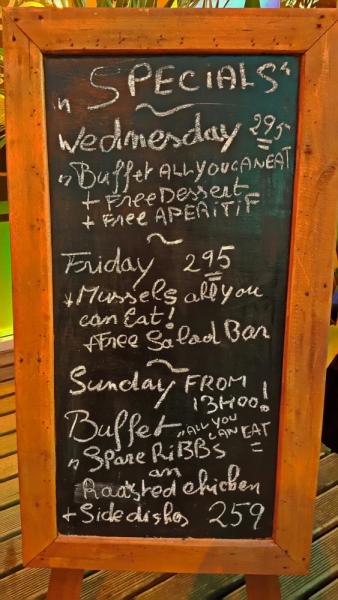 " SPECIALS "
Wednesday 295
" Buffet ALL YOU CAN EAT
+ Free Dessert
+ Free APERITIF
Friday 295
+ Mussels all you
can Eat!
+ Free Salad Bar
Sunday FROM
13H00!
Buffet "ALL YOU CAN EAT
" SpareRiBBs
an
Raasted chicken
+ Sidedishes 259